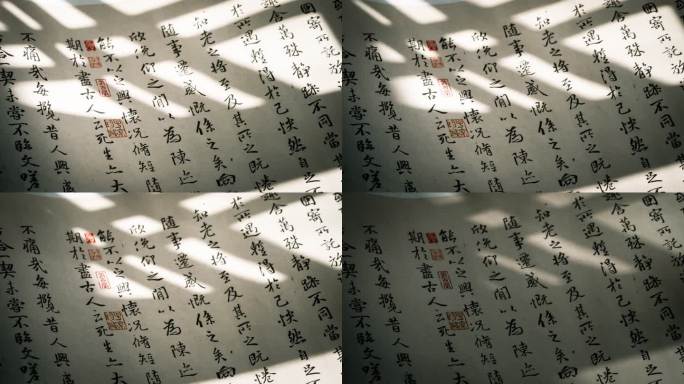 因寄所託放
趣舍萬殊靜躁不同當
於所遇蹔得於己快然自足不
知老之將至及其所之既惓
隨事遷感慨係之矣向
欣俛仰之間以為陳迹
能不以之興懷況脩短隨
期於盡古人云死生亦大
不痛哉每攬昔人興感
合一契未嘗不臨文嗟
因寄所託放
趣舍萬殊靜躁不同當
於所遇蹔得於己快然自足不
知老之將至及其所之既惓
隨事遷感慨係之矣向
欣俛仰之間以為陳迹
能不以之興懷況脩短隨
期於盡古人云死生亦大
不痛哉每攬昔人興感
合一契未嘗不臨文嗟
因寄所託放
趣舍萬殊靜躁不同當
於所遇蹔得於己快然自足不
知老之將至及其所之既惓
隨事遷感慨係之矣向
欣俛仰之間以為陳迹
能不以之興懷況脩短隨
期於盡古人云死生亦大
不痛哉每攬昔人興感
合一契未嘗不臨文嗟
因寄所託放
趣舍萬殊靜躁不同當
於所遇蹔得於己快然自足不
知老之將至及其所之既惓
隨事遷感慨係之矣向
欣俛仰之間以為陳迹
能不以之興懷況脩短隨
期於盡古人云死生亦大
不痛哉每攬昔人興感
合一契未嘗不臨文嗟